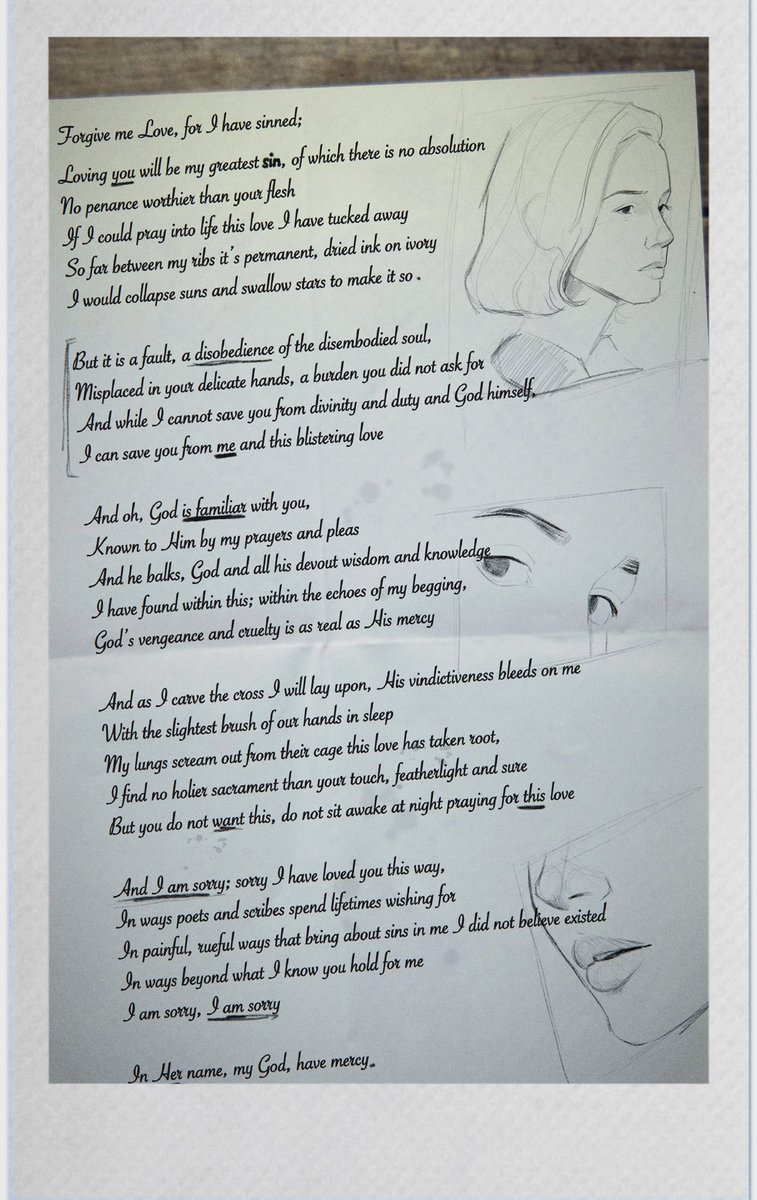 Forgive me Love, for I have sinned;
Loving you will be my greatest sin, of which there is no absolution
No penance worthier than your flesh
If I could pray into life this love I have tucked away
So far between my ribs it's permanent, dried ink on ivory
I would collapse suns and swallow stars to make it so.
But it is a fault, a disobedience of the disembodied soul,
Misplaced in your delicate hands, a burden you did not ask for
And while I cannot save you from divinity and duty and God himself,
I can save you from me and this blistering love
And oh, God is familiar with you,
Known to Him by my prayers and pleas
And he balks, God and all his devout wisdom and knowledge
I have found within this; within the echoes of my begging,
God's vengeance and cruelty is as real as His mercy
And as I carve the cross I will lay upon, His vindictiveness bleeds on me
With the slightest brush of our hands in sleep
My lungs scream out from their cage this love has taken root,
I find no holier sacrament than your touch, featherlight and sure
But you do not want this, do not sit awake at night praying for this love
And I am sorry; sorry I have loved you this way,
In ways poets and scribes spend lifetimes wishing for
In painful, rueful ways that bring about sins in me I did not believe existed
In ways beyond what I know you hold for me
I am sorry, I am sorry
In Her name, my God, have mercy.